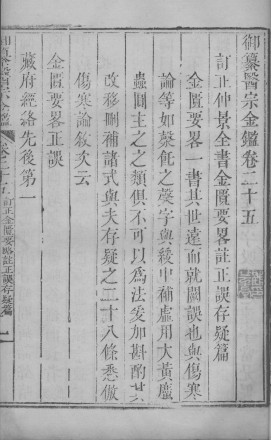 御纂醫宗金鑑卷二十五
訂正仲景全書金匱要畧註正誤存疑篇
金匱要畧一書其世遠而就闕誤也與傷寒
論等如槳飥之槳字與綬中補虛用大黃䗪
蟲圓主之之類俱不可以爲法爰加斟酌其
改移刪補諸式與夫存疑之二十八條悉倣
傷寒論敘次云
金匱要畧正誤
藏府經絡先後第一
卷二十五 訂正金匱要略註正誤存疑篇 一